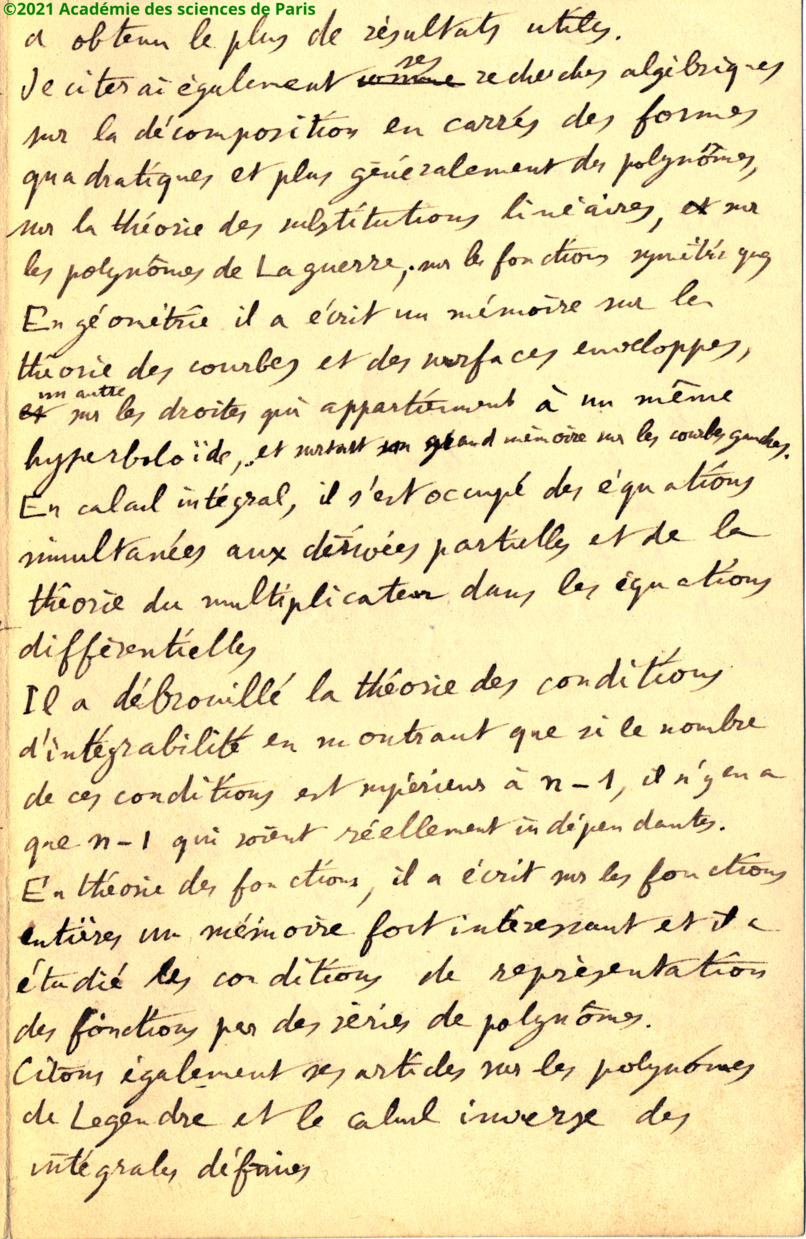 ©2021 Académie des sciences de Paris
a obtenu le plus de résultats utiles.
Je citerai également ses recherches algébriques
sur la décomposition en carrés des formes
quadratiques et plus généralement des polynômes,
sur la théorie des substitutions linéaires, et sur
les polynômes de Laguerre, sur les fonctions symétriques
En géométrie il a écrit un mémoire sur la
théorie des courbes et des surfaces enveloppes,
un autre
et sur les droites qui appartiennent à un même
hyperboloïde, et surtout son grand mémoire sur les courbes gauches.
En calcul intégral, il s'est occupé des équations
simultanées aux dérivées partielles et de la
théorie du multiplicateur dans les équations
différentielles
Il a débrouillé la théorie des conditions
d'intégrabilité en montrant que si le nombre
de ces conditions est supérieur à n-1, il n'y en a
que n-1 qui soient réellement indépendantes.
En théorie des fonctions, il a écrit sur les fonctions
entières un mémoire fort intéressant et il a
étudié les conditions de représentation
des fonctions par des séries de polynômes.
Citons également ses articles sur les polynômes
de Legendre et le calcul inverse des
intégrales définies